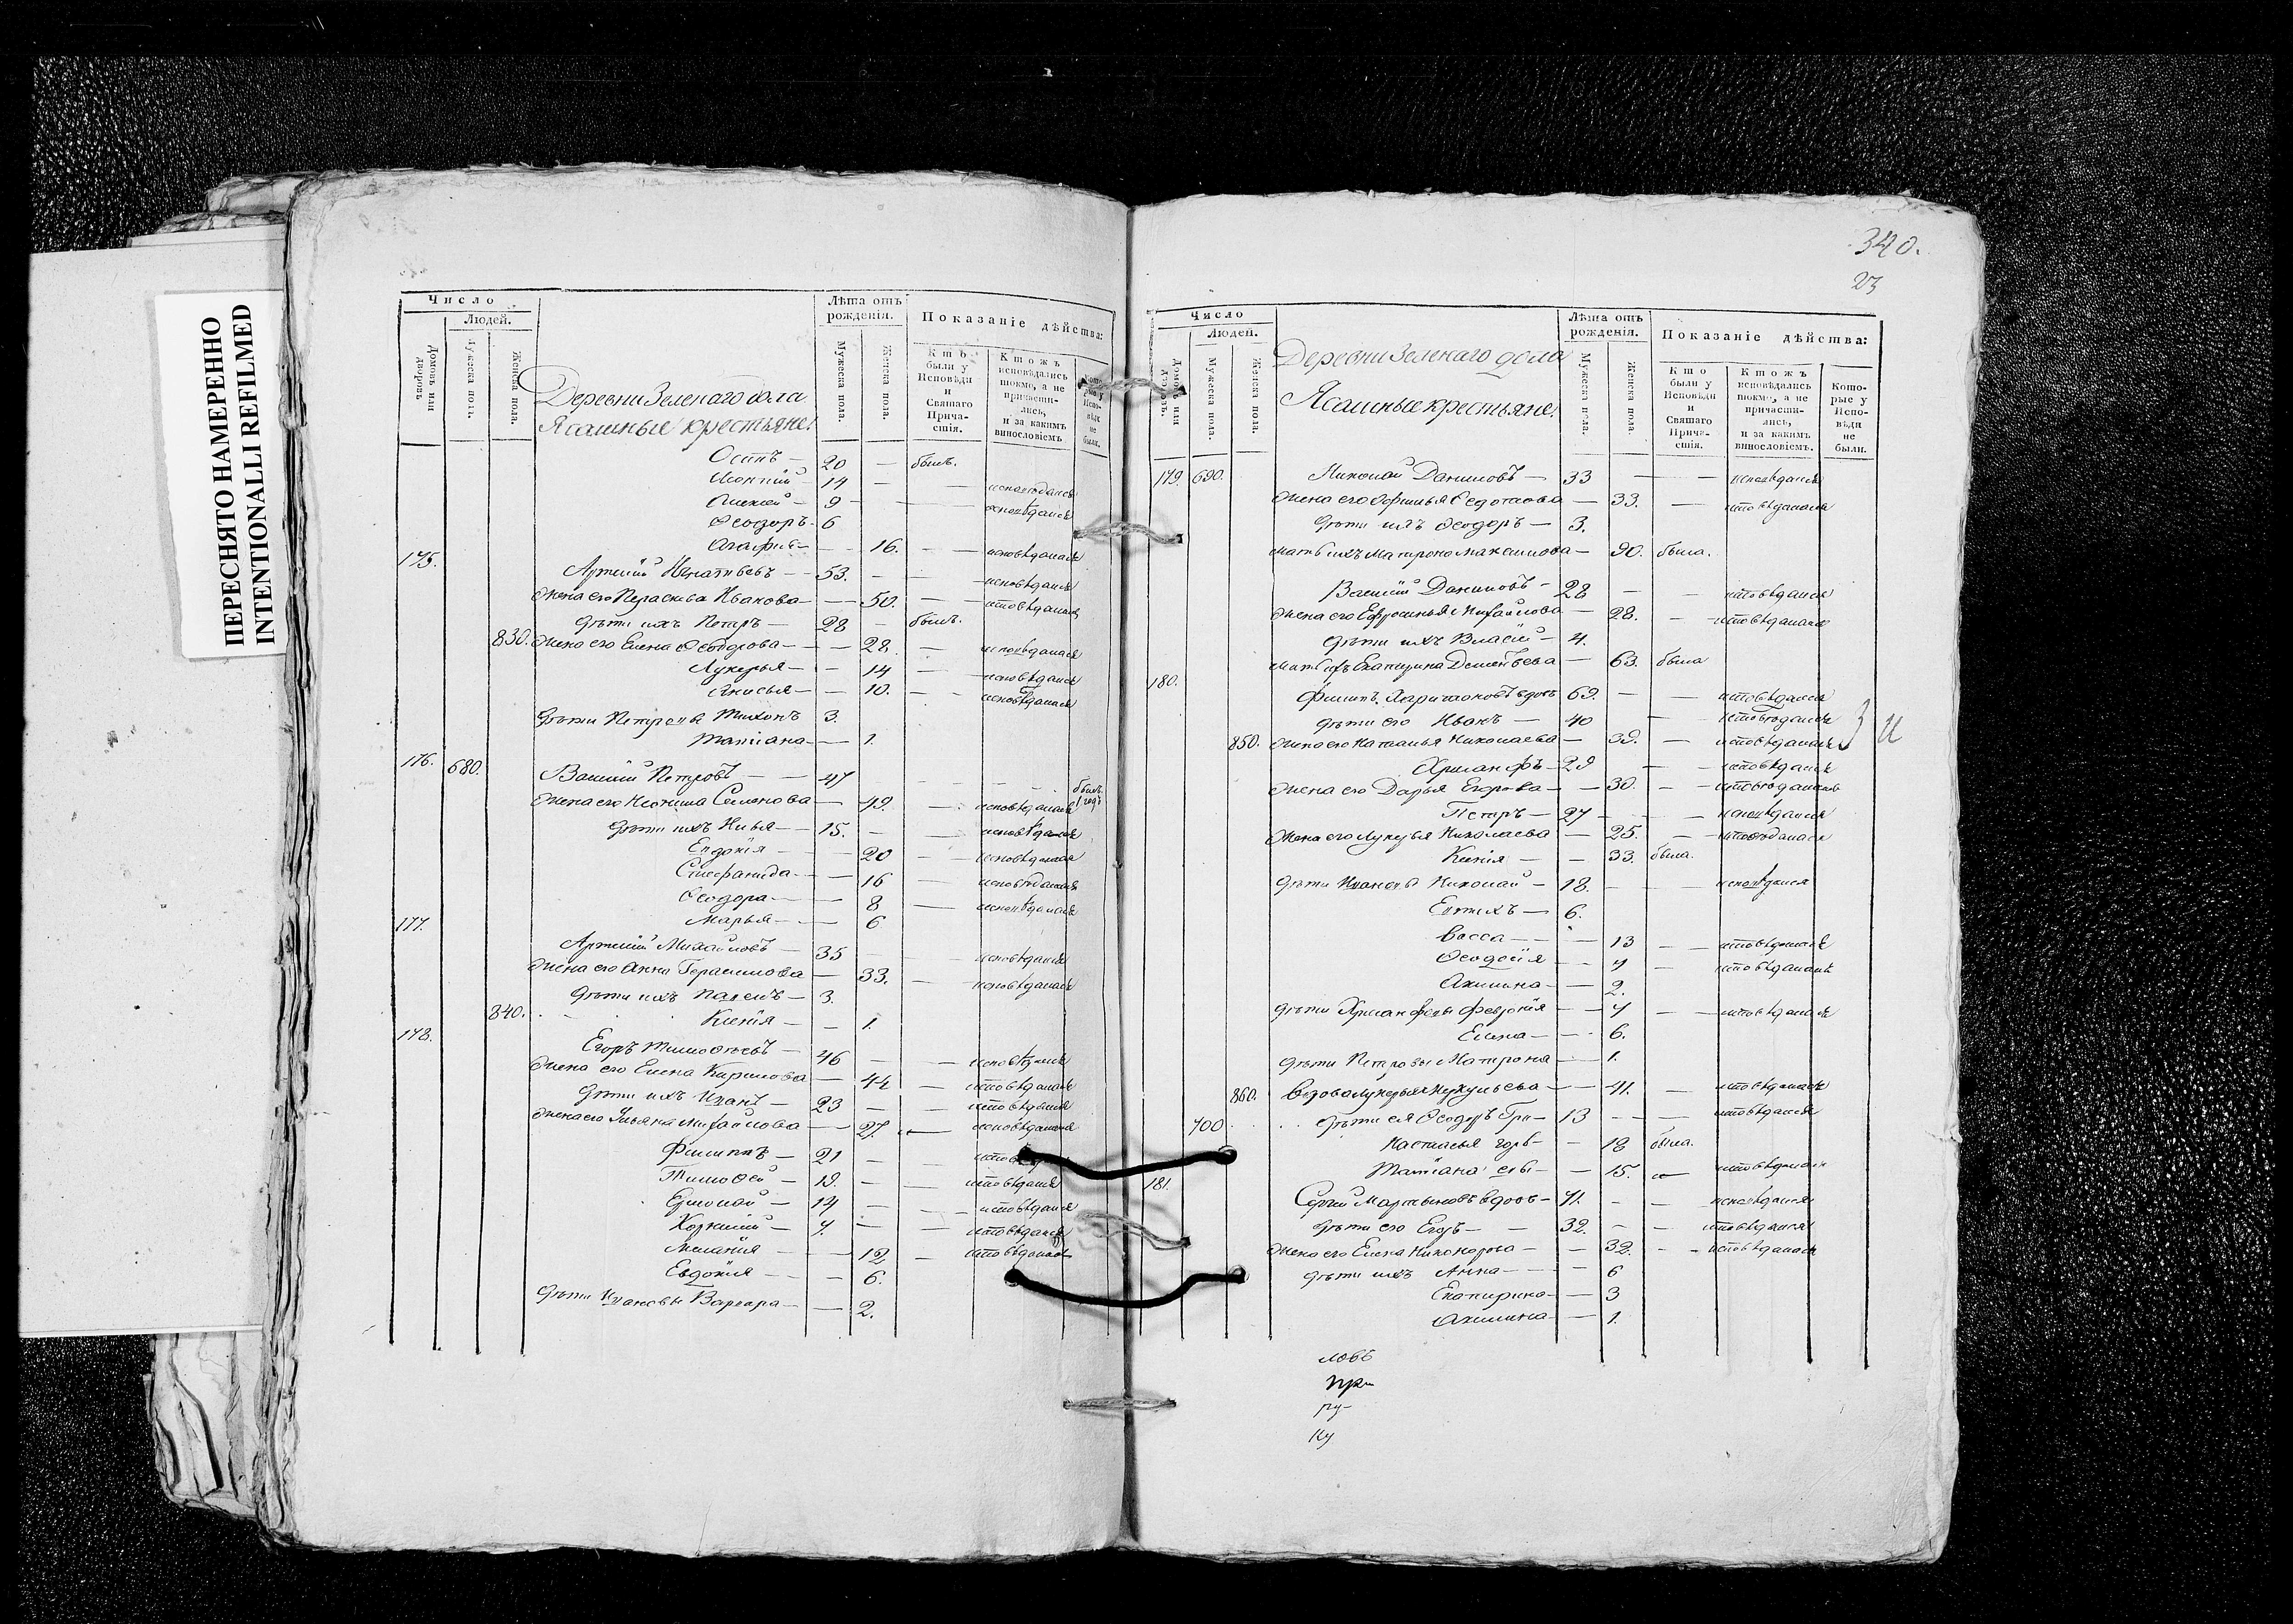 ПЕРЕСНЯТО НАМЕРЕННО
INTENTIONALLI REFILMED
Число
Людей.
Домовъ или дворовъ.
Мужеска полъ.
Женска пола.
Деревни Зеленаго дола
Ясашные крестьяне:
Лѣта отъ рожденія.
Мужеска пола.
Женска пола.
Показаніе дѣйства:
Кто были у Исповѣди и Святаго Причастія.
Ктожъ исповѣдались токмо, а не причастились, и за какимъ винословіемъ.
Которые у Исповѣди не были.
Осипъ — 20 — былъ.
14 — — исповѣдался
Алексей — 9 — — исповѣдался
Ѳеодоръ — 6
Агафья — — 16. — — исповѣдалась
175. Артемій Игнатьевъ — 53. — — исповѣдался
Жена его Параскева Иванова — — 50. — исповѣдалась
Дѣти ихъ Петръ — 28 — былъ.
830. Жена его Елена Ѳеодорова — — 28. — исповѣдалась
Лукерья — — 14 — исповѣдалась
Анисья — — 10. — — исповѣдалась
Дѣти Петровы Тихонъ 3.
Татіана — — 1.
176. 680. Василій Петровъ — — 47 былъ
Жена его Неонила Семенова — 49. — исповѣдалась
Дѣти ихъ Илья — 15. — — исповѣдался
Евдокія — — 20 — исповѣдалась
Стефанида — — 16 — исповѣдалась
Ѳеодора — — 8 — исповѣдалась
Марья — — 6
177. Артемій Михайловъ — 35 — — исповѣдался
Жена его Анна Герасимова — 33. — исповѣдалась
Дѣти ихъ Павелъ — 3.
840. Ксенія — — 1.
178. Егоръ Тимоѳѣевъ — 46 — — исповѣдался
Жена его Елена Кирилова — 44 — исповѣдалась
Дѣти ихъ Иванъ — 23 — — исповѣдался
Жена его Ульяна Михайлова — 27. — исповѣдалась
Филиппъ — 21 —
Тимоѳей — 19. — — исповѣдался
Ермолай — 14 — — исповѣдался
Корнилій — 7. — — исповѣдался
Меланія — — 12 — исповѣдалась
Евдокія — — 6.
Дѣти Ивановы Варвара — — 2.
340.
23
Число
Людей.
Домовъ или дворовъ.
Мужеска пола.
Женска пола.
Деревни Зеленаго дола
Ясашные крестьяне:
Лѣта отъ рожденія.
Мужеска пола.
Женска пола.
Показаніе дѣйства:
Кто были у Исповѣди и Святаго Причастія.
Ктожъ исповѣдались токмо, а не причастились, и за какимъ винословіемъ.
Которые у Исповѣди не были.
179. 690. Николай Даниловъ — 33 — — исповѣдался
Жена его Ѳедотова — 33. — исповѣдалась
Дѣти ихъ Ѳеодоръ — 3.
Мать ихъ Матрона Максимова — 90. была.
Василій Даниловъ — 28 — — исповѣдался
Жена его Ефросинья Михайлова — 28. — исповѣдалась
Дѣти ихъ Власій — 4.
Мать ихъ Екатерина Дементьева — 63. была
180. Филипъ Харитоновъ вдовъ 69. — — исповѣдался
Дѣти его Иванъ — 40 — исповѣдался
850. Жена его Наталья Николаева — 39. — исповѣдалась
Хрисанфъ — 29 — — исповѣдался
Жена его Дарья Егорова — — 30. — исповѣдалась
Петръ — 27 — — исповѣдался
Жена его Лукерья Николаева — 25. — исповѣдалась
Ксенія — — 33. была.
Дѣти Ивановы Николай — 18. — — исповѣдался
Евтихъ — 6.
Васса — — 13 — исповѣдалась
Ѳеодосія — — 7 — исповѣдалась
Акилина — — 2.
Дѣти Хрисанфовы Февронія — — 7 — исповѣдалась
Елена — — 6.
Дѣти Петровы Матрона — — 1.
860. Вдова Лукерья — — 41. — исповѣдалась
700. Дѣти ея Ѳеодоръ Гри- — 13 — — исповѣдался
Настасья горь- — 18 была.
Татіана евы — — 15. — исповѣдалась
181. Сергій Мартыновъ вдовъ — 71. — — исповѣдался
Дѣти его Егоръ — 32. — — исповѣдался
Жена его Елена Никонорова — — 32. — исповѣдалась
Дѣти ихъ Анна — — 6
Екатерина — — 3
Акилина — — 1.
ловъ
при
ру-
ку